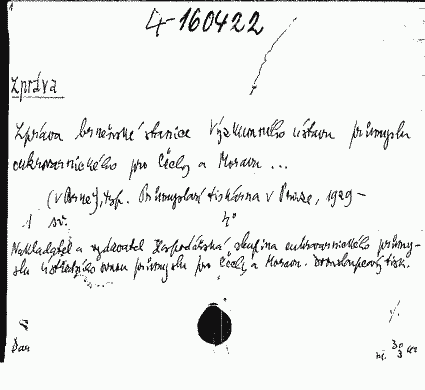 4-160422
Zpráva
Zpráva brněnské stanice Výzkumného ústavu průmyslu
cukrovarnického pro Čechy a Moravu ...
(V Brně), t. Průmyslová tiskárna v Praze, 1929-
1 sv. 4°
Nakladatel a vydavatel Hospodářská skupina cukrovarnického průmy-
slu Ústředního svazu průmyslu pro Čechy a Moravu. Dvousloupcový tisk.
Dar